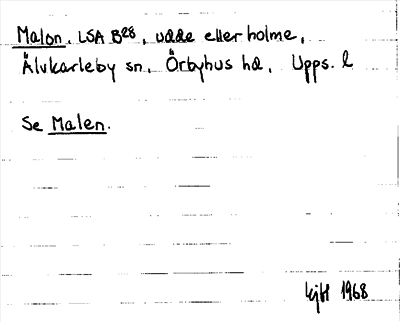 Malon. LSA B28, udde eller holme,
Älvkarleby sn, Örbyhus hd, Upps. l
Se Malen.
1968